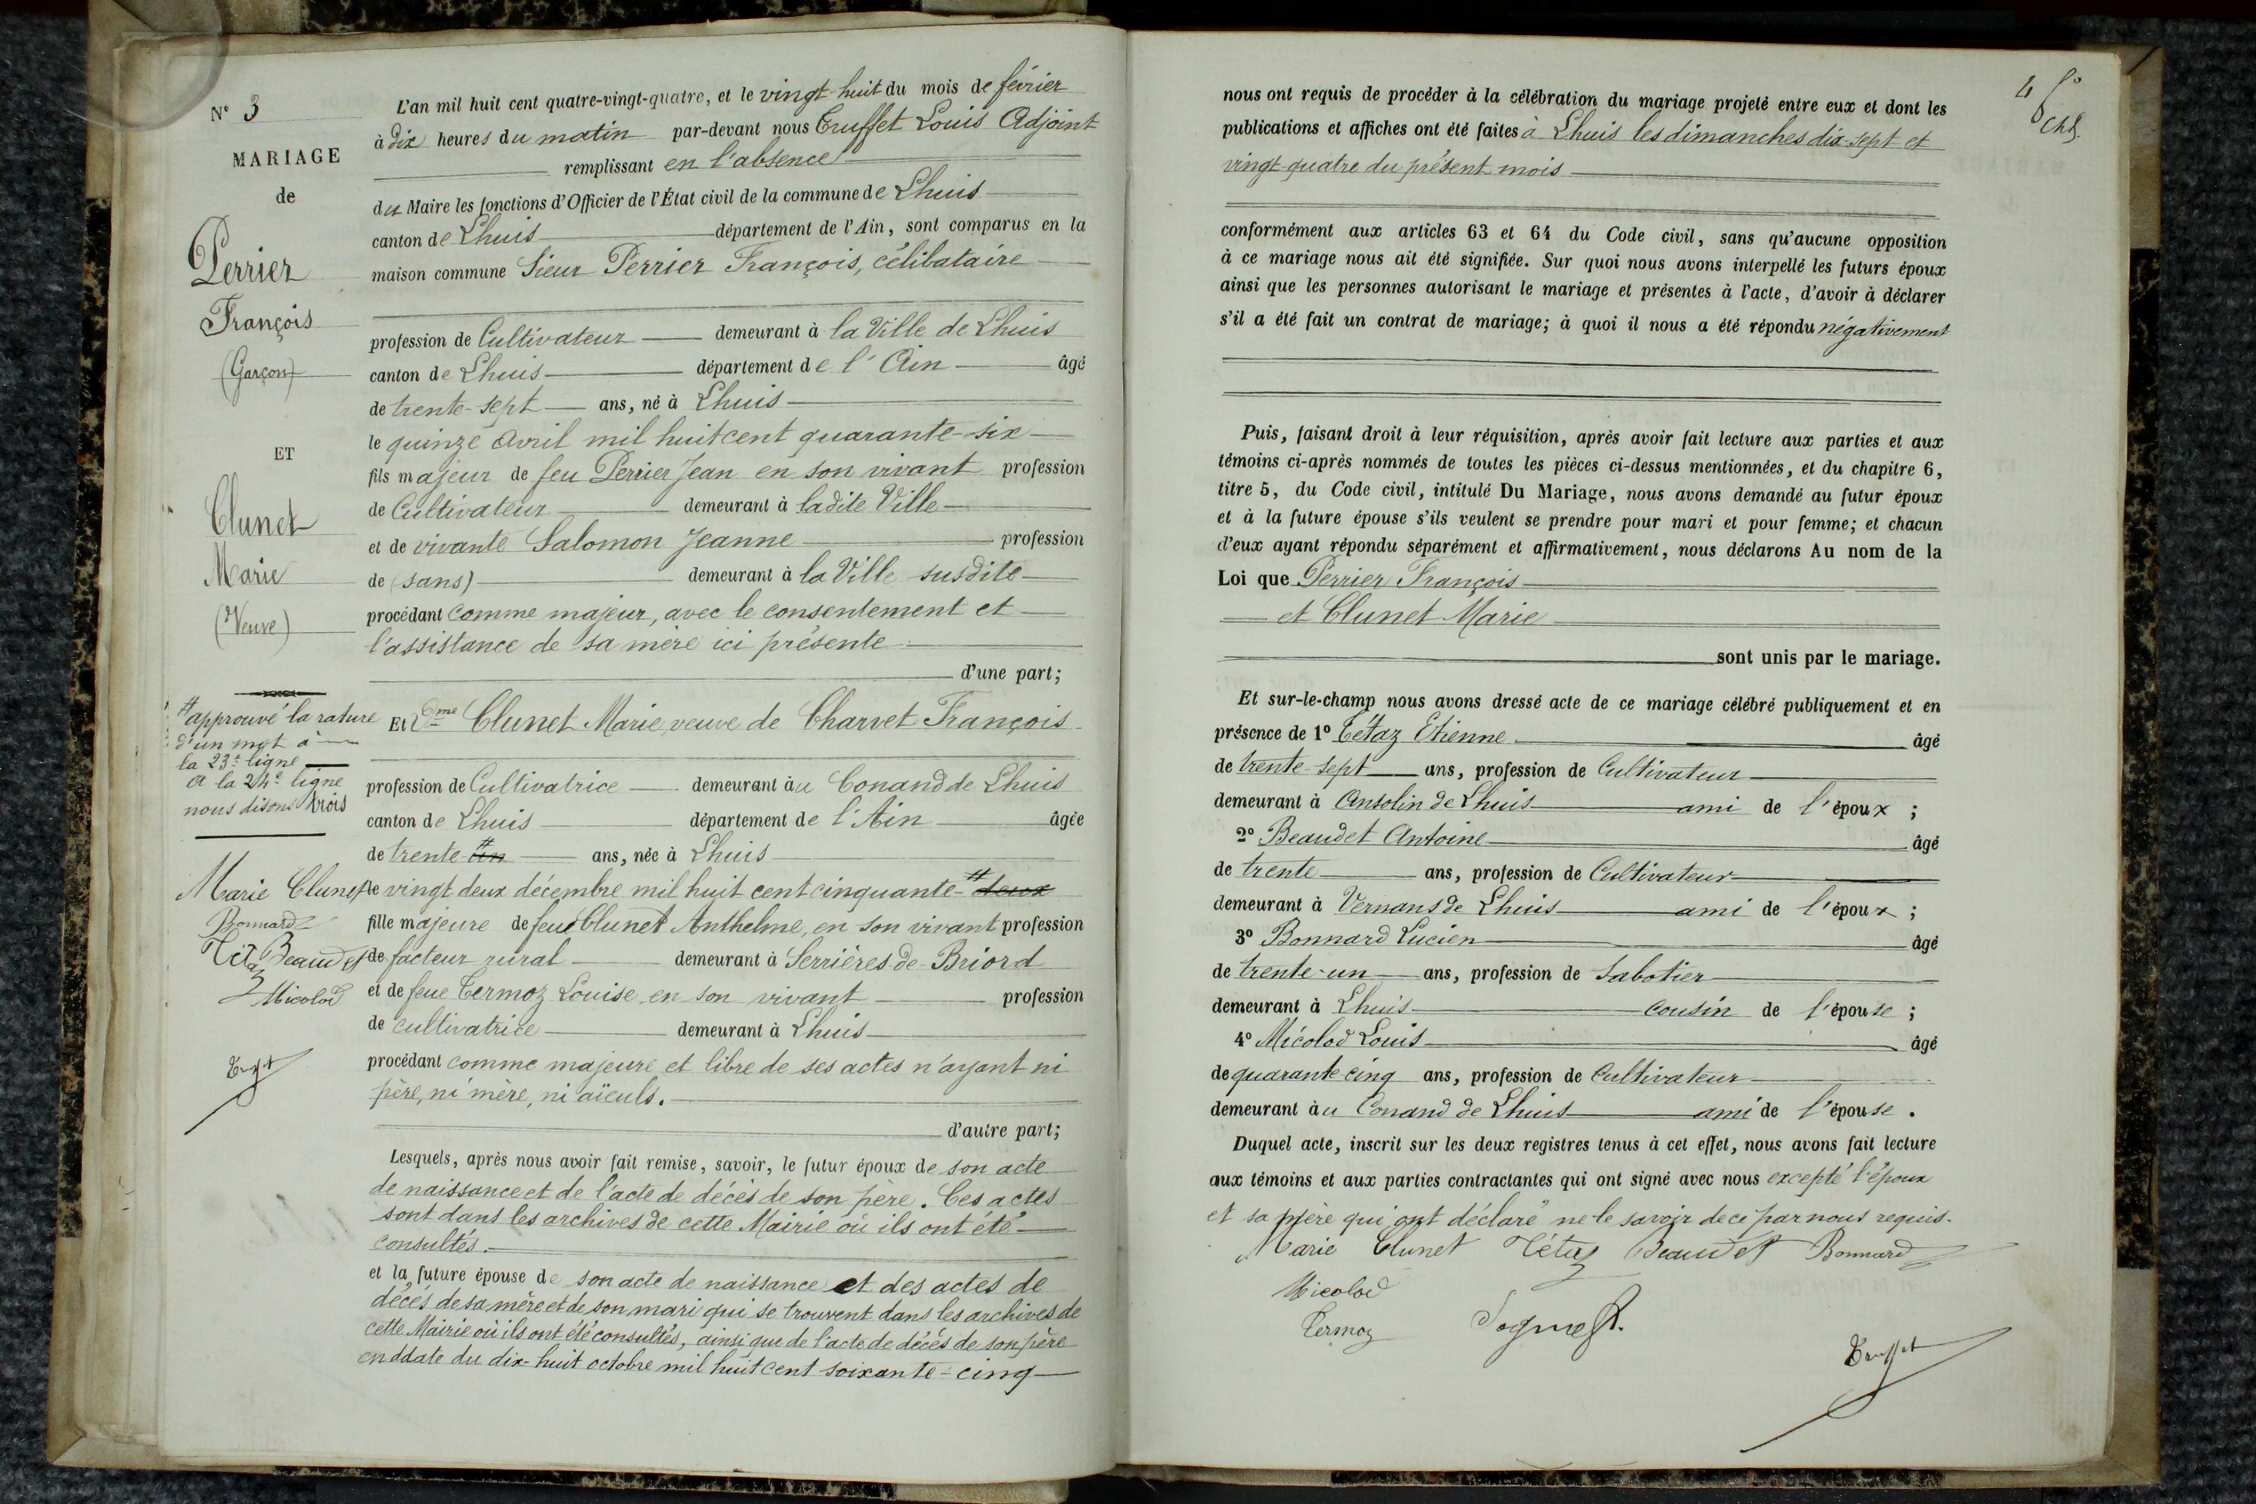 N° 3
MARIAGE
de
Perrier
François
(Garçon)
ET
Clunet
Marie
(Veuve)
# approuvé la rature
d'un mot à
la 23e ligne
a la 24e ligne
nous disons trois
Marie Clunet
Bonnard
Tétaz Beaudet
Micolod
L'an mil huit cent quatre-vingt-quatre, et le vingt-huit du mois de février
à dix heures du matin par-devant nous Truffet Louis Adjoint
remplissant en l'absence
du Maire les fonctions d'Officier de l'État civil de la commune de Lhuis
canton de Lhuis département de l'Ain, sont comparus en la
maison commune Sieur Perrier François, célibataire
profession de Cultivateur demeurant à la Ville de Lhuis
canton de Lhuis département de l'Ain âgé
de trente-sept ans, né à Lhuis
le quinze Avril mil huit cent quarante-six
fils majeur de feu Perrier Jean en son vivant profession
de Cultivateur demeurant à ladite Ville
et de vivante Salomon Jeanne profession
de (sans) demeurant à la Ville susdite
procédant comme majeur, avec le consentement et
l'assistance de sa mère ici présente
d'une part;
Et Dme Clunet Marie, veuve de Charvet François
profession de Cultivatrice demeurant au Conand de Lhuis
canton de Lhuis département de l'Ain âgée
de trente # un ans, née à Lhuis
le vingt deux décembre mil huit cent cinquante-# deux
fille majeure de feu Clunet Anthelme, en son vivant profession
de facteur rural demeurant à Serrières-de-Briord
et de feue Termoz Louise en son vivant profession
de cultivatrice demeurant à Lhuis
procédant comme majeure et libre de ses actes n'ayant ni
père, ni mère, ni aïeuls.
d'autre part;
Lesquels, après nous avoir fait remise, savoir, le futur époux de son acte
de naissance et de l'acte de décès de son père. Ces actes
sont dans les archives de cette Mairie où ils ont été
consultés.
et la future épouse de son acte de naissance et des actes de
décès de sa mère et de son mari qui se trouvent dans les archives de
cette Mairie où ils ont été consultés, ainsi que de l'acte de décès de son père
en ddate du dix-huit octobre mil huit cent soixante-cinq
nous ont requis de procéder à la célébration du mariage projeté entre eux et dont les
publications et affiches ont été faites à Lhuis les dimanches dix-sept et
vingt-quatre du présent mois
conformément aux articles 63 et 64 du Code civil, sans qu'aucune opposition
à ce mariage nous ait été signifiée. Sur quoi nous avons interpellé les futurs époux
ainsi que les personnes autorisant le mariage et présentes à l'acte, d'avoir à déclarer
s'il a été fait un contrat de mariage; à quoi il nous a été répondu négativement
Puis, faisant droit à leur réquisition, après avoir fait lecture aux parties et aux
témoins ci-après nommés de toutes les pièces ci-dessus mentionnées, et du chapitre 6,
titre 5, du Code civil, intitulé Du Mariage, nous avons demandé au futur époux
et à la future épouse s'ils veulent se prendre pour mari et pour femme; et chacun
d'eux ayant répondu séparément et affirmativement, nous déclarons Au nom de la
Loi que Perrier François
et Clunet Marie
sont unis par le mariage.
Et sur-le-champ nous avons dressé acte de ce mariage célébré publiquement et en
présence de 1° Tétaz Etienne âgé
de trente-sept ans, profession de Cultivateur
demeurant à Ansolin de Lhuis ami de l'époux;
2° Beaudet Antoine âgé
de trente ans, profession de Cultivateur
demeurant à Vernans de Lhuis ami de l'époux;
3° Bonnard Lucien âgé
de trente-un ans, profession de Sabotier
demeurant à Lhuis cousin de l'épouse;
4° Micolod Louis âgé
de quarante cinq ans, profession de Cultivateur
demeurant au Conand de Lhuis ami de l'épouse.
Duquel acte, inscrit sur les deux registres tenus à cet effet, nous avons fait lecture
aux témoins et aux parties contractantes qui ont signé avec nous excepté l'époux
et sa mère qui ont déclaré ne le savoir de ce par nous requis.
Marie Clunet Tétaz Beaudet Bonnard
Micolod
Termoz
Truffet